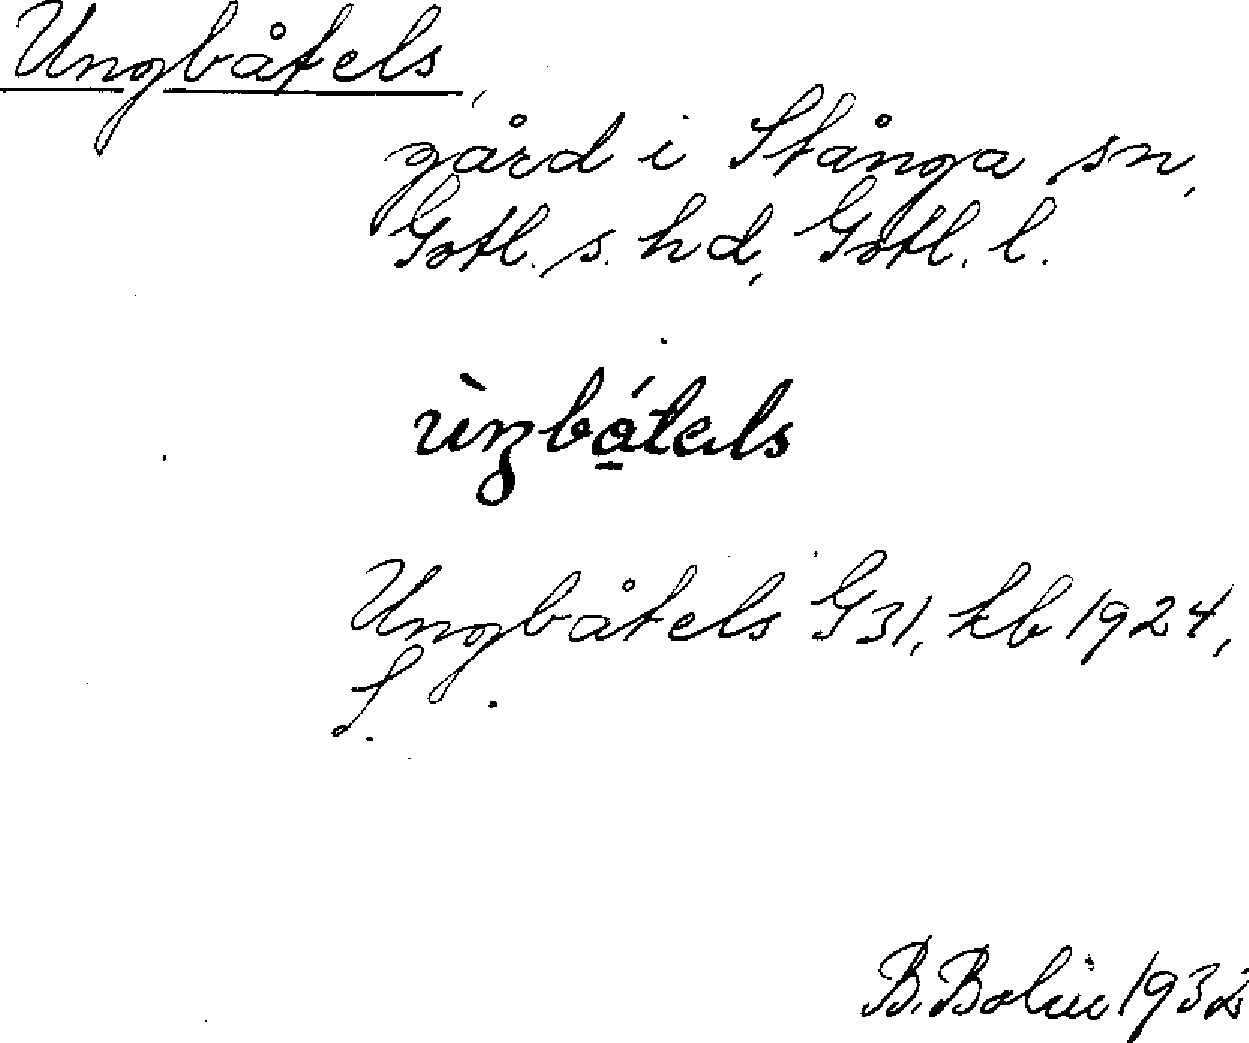 Ungbåtels,
gård i Stånga sn,
Gotl. s. hd, Gotl. l.
ùŋbá̱tels
Ungbåtels G 31, kb 1924,
S.
B. Bolin 1932